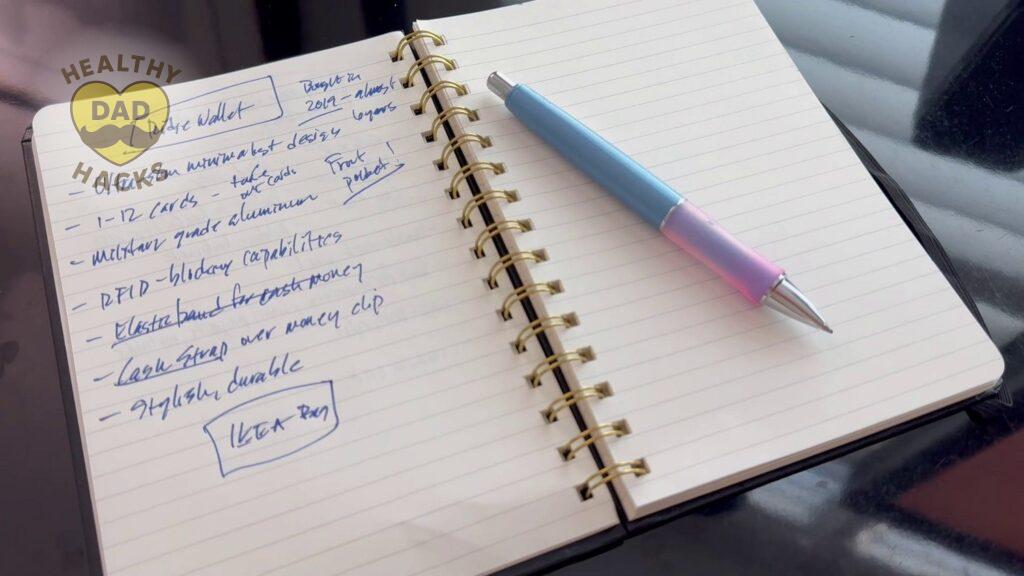 HEALTHY
DAD
HACKS
Wallet
Bought in
2019 - almost
6 years
minimalist design
- 1-12 cards - take
out cards
Front
pocket!
- military grade aluminum
- RFID-blocking capabilities
- Elastic band for cash money
- Cash Strap over money clip
- Stylish, durable
IKEA Bag